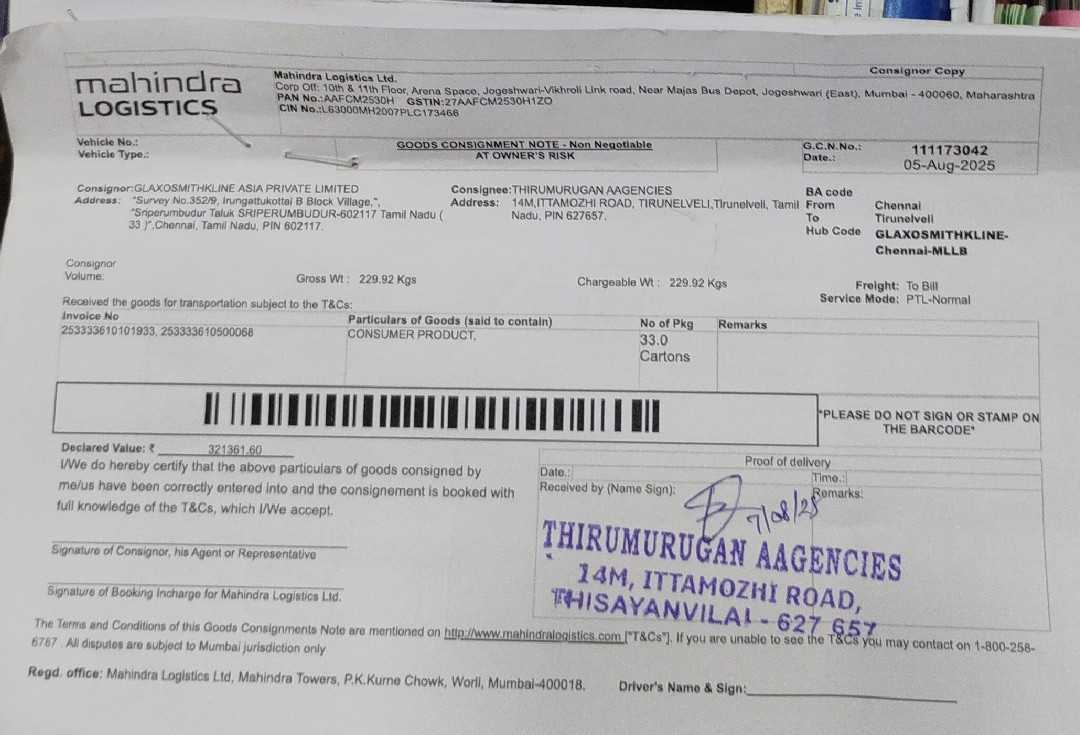 Consignor Copy
mahindra
LOGISTICS
Mahindra Logistics Ltd.
Corp Off: 10th & 11th Floor, Arena Space, Jogeshwari-Vikhroli Link road, Near Majas Bus Depot, Jogeshwari (East), Mumbai - 400060, Maharashtra
PAN No.:AAFCM2530H GSTIN:27AAFCM2530H1ZO
CIN No.:L63000MH2007PLC173466
Vehicle No.:
Vehicle Type.:
GOODS CONSIGNMENT NOTE - Non Negotiable
AT OWNER'S RISK
G.C.N.No.: 111173042
Date.: 05-Aug-2025
Consignor:GLAXOSMITHKLINE ASIA PRIVATE LIMITED
Address: "Survey No.352/9, Irungattukottai B Block Village,",
"Sriperumbudur Taluk SRIPERUMBUDUR-602117 Tamil Nadu (
33 )",Chennai, Tamil Nadu, PIN 602117.
Consignee:THIRUMURUGAN AAGENCIES
Address: 14M,ITTAMOZHI ROAD, TIRUNELVELI,Tirunelveli, Tamil
Nadu, PIN 627657.
BA code
From Chennai
To Tirunelveli
Hub Code GLAXOSMITHKLINE-
Chennai-MLLB
Consignor
Volume:
Gross Wt : 229.92 Kgs
Chargeable Wt : 229.92 Kgs
Freight: To Bill
Service Mode: PTL-Normal
Received the goods for transportation subject to the T&Cs:
Invoice No Particulars of Goods (said to contain) No of Pkg Remarks
253333610101933, 253333610500068 CONSUMER PRODUCT, 33.0
Cartons
*PLEASE DO NOT SIGN OR STAMP ON
THE BARCODE*
Declared Value: ₹ 321361.60
I/We do hereby certify that the above particulars of goods consigned by
me/us have been correctly entered into and the consignement is booked with
full knowledge of the T&Cs, which I/We accept.
Signature of Consignor, his Agent or Representative
Signature of Booking Incharge for Mahindra Logistics Ltd.
Proof of delivery
Date.: Time.:
Received by (Name Sign): Remarks:
7/08/25
THIRUMURUGAN AAGENCIES
14M, ITTAMOZHI ROAD,
THISAYANVILAI - 627 657
The Terms and Conditions of this Goods Consignments Note are mentioned on http://www.mahindralogistics.com ["T&Cs"]. If you are unable to see the T&Cs you may contact on 1-800-258-
6787 . All disputes are subject to Mumbai jurisdiction only
Regd. office: Mahindra Logistics Ltd, Mahindra Towers, P.K.Kurne Chowk, Worli, Mumbai-400018.
Driver's Name & Sign: